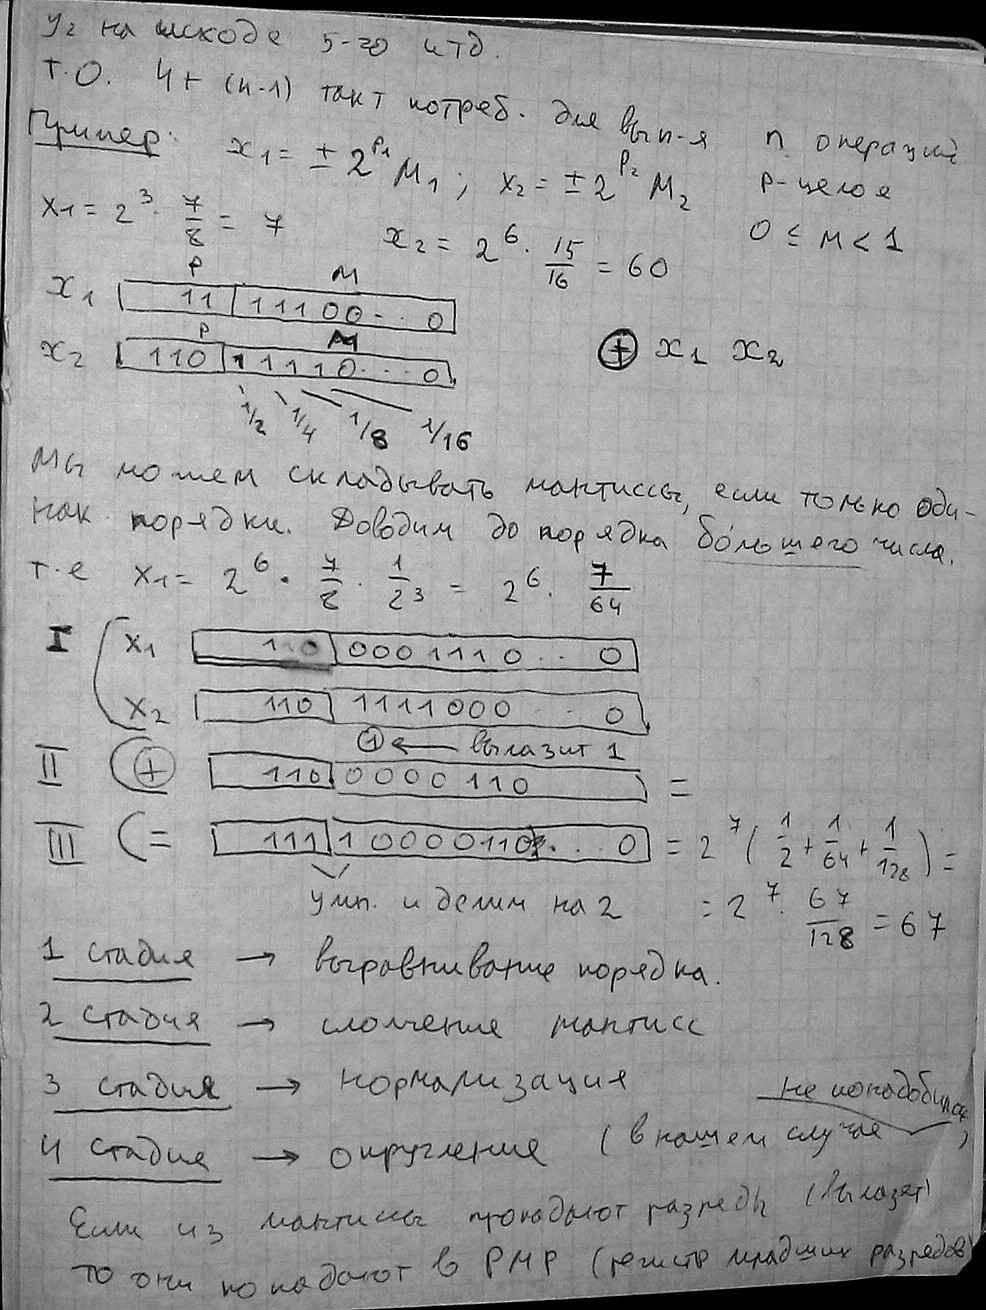 y₂ на исходе 5-го итд.
Т.О. 4+(n-1) такт потреб. для вып-я n операций
Пример: x₁ = ± 2^P₁ M₁ ; x₂ = ± 2^P₂ M₂ P-целое
x₁ = 2³ · 7/8 = 7 x₂ = 2⁶ · 15/16 = 60 0 ≤ M < 1
P M
x₁ 11 11100...0
P M
x₂ 110 11110...0 ⊕ x₁ x₂
1/2 1/4 1/8 1/16
Мы можем складывать мантиссы, если только оди-
нак порядки. Доводим до порядка бо́льшего числа.
т.е x₁ = 2⁶ · 7/8 · 1/2³ = 2⁶ · 7/64
I x₁ 110 0001110..0
x₂ 110 1111000..0
① ← вылазит 1
II (+) 110 0000110 =
III (= 111 10000110...0 = 2⁷ (1/2 + 1/64 + 1/128) =
умн. и делим на 2 = 2⁷ · 67/128 = 67
1 стадия → выравнивание порядка.
2 стадия → сложение мантисс
3 стадия → нормализация
не понадобилось
4 стадия → округление (в нашем случае )
Если из мантиссы пропадают разряды (вылазят)
то они попадают в РМР (регистр младших разрядов)